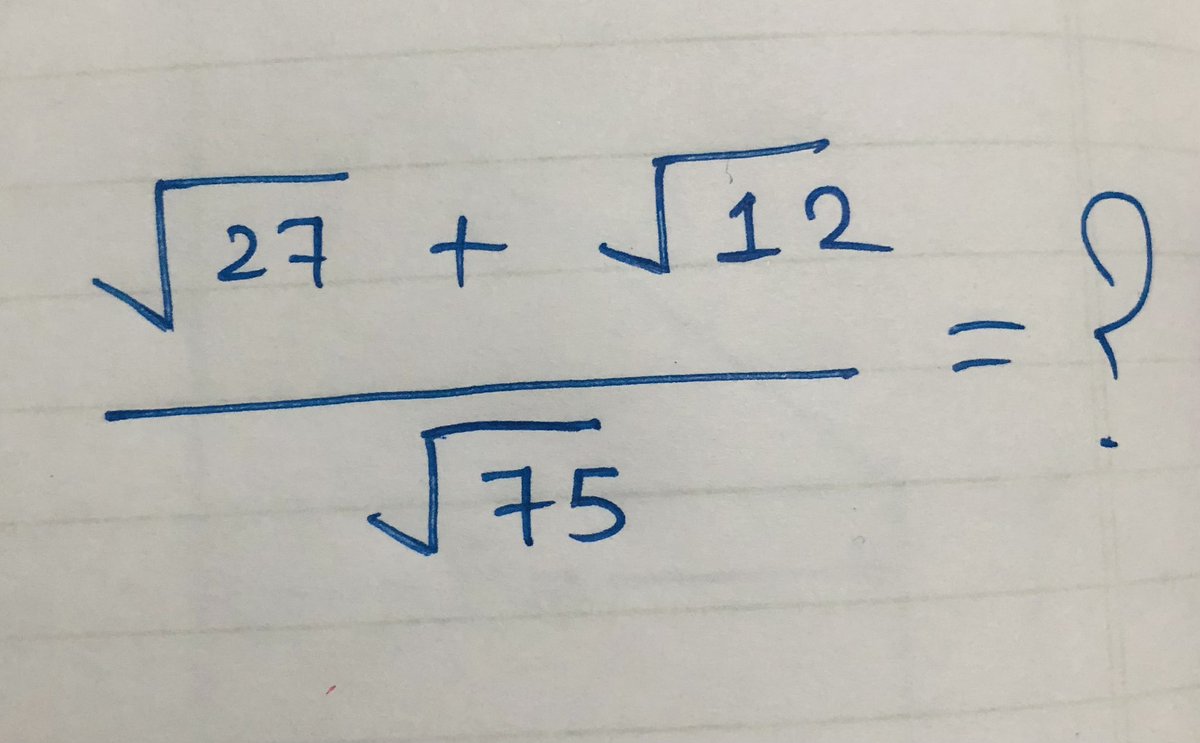 √27 + √12
= ?
√75